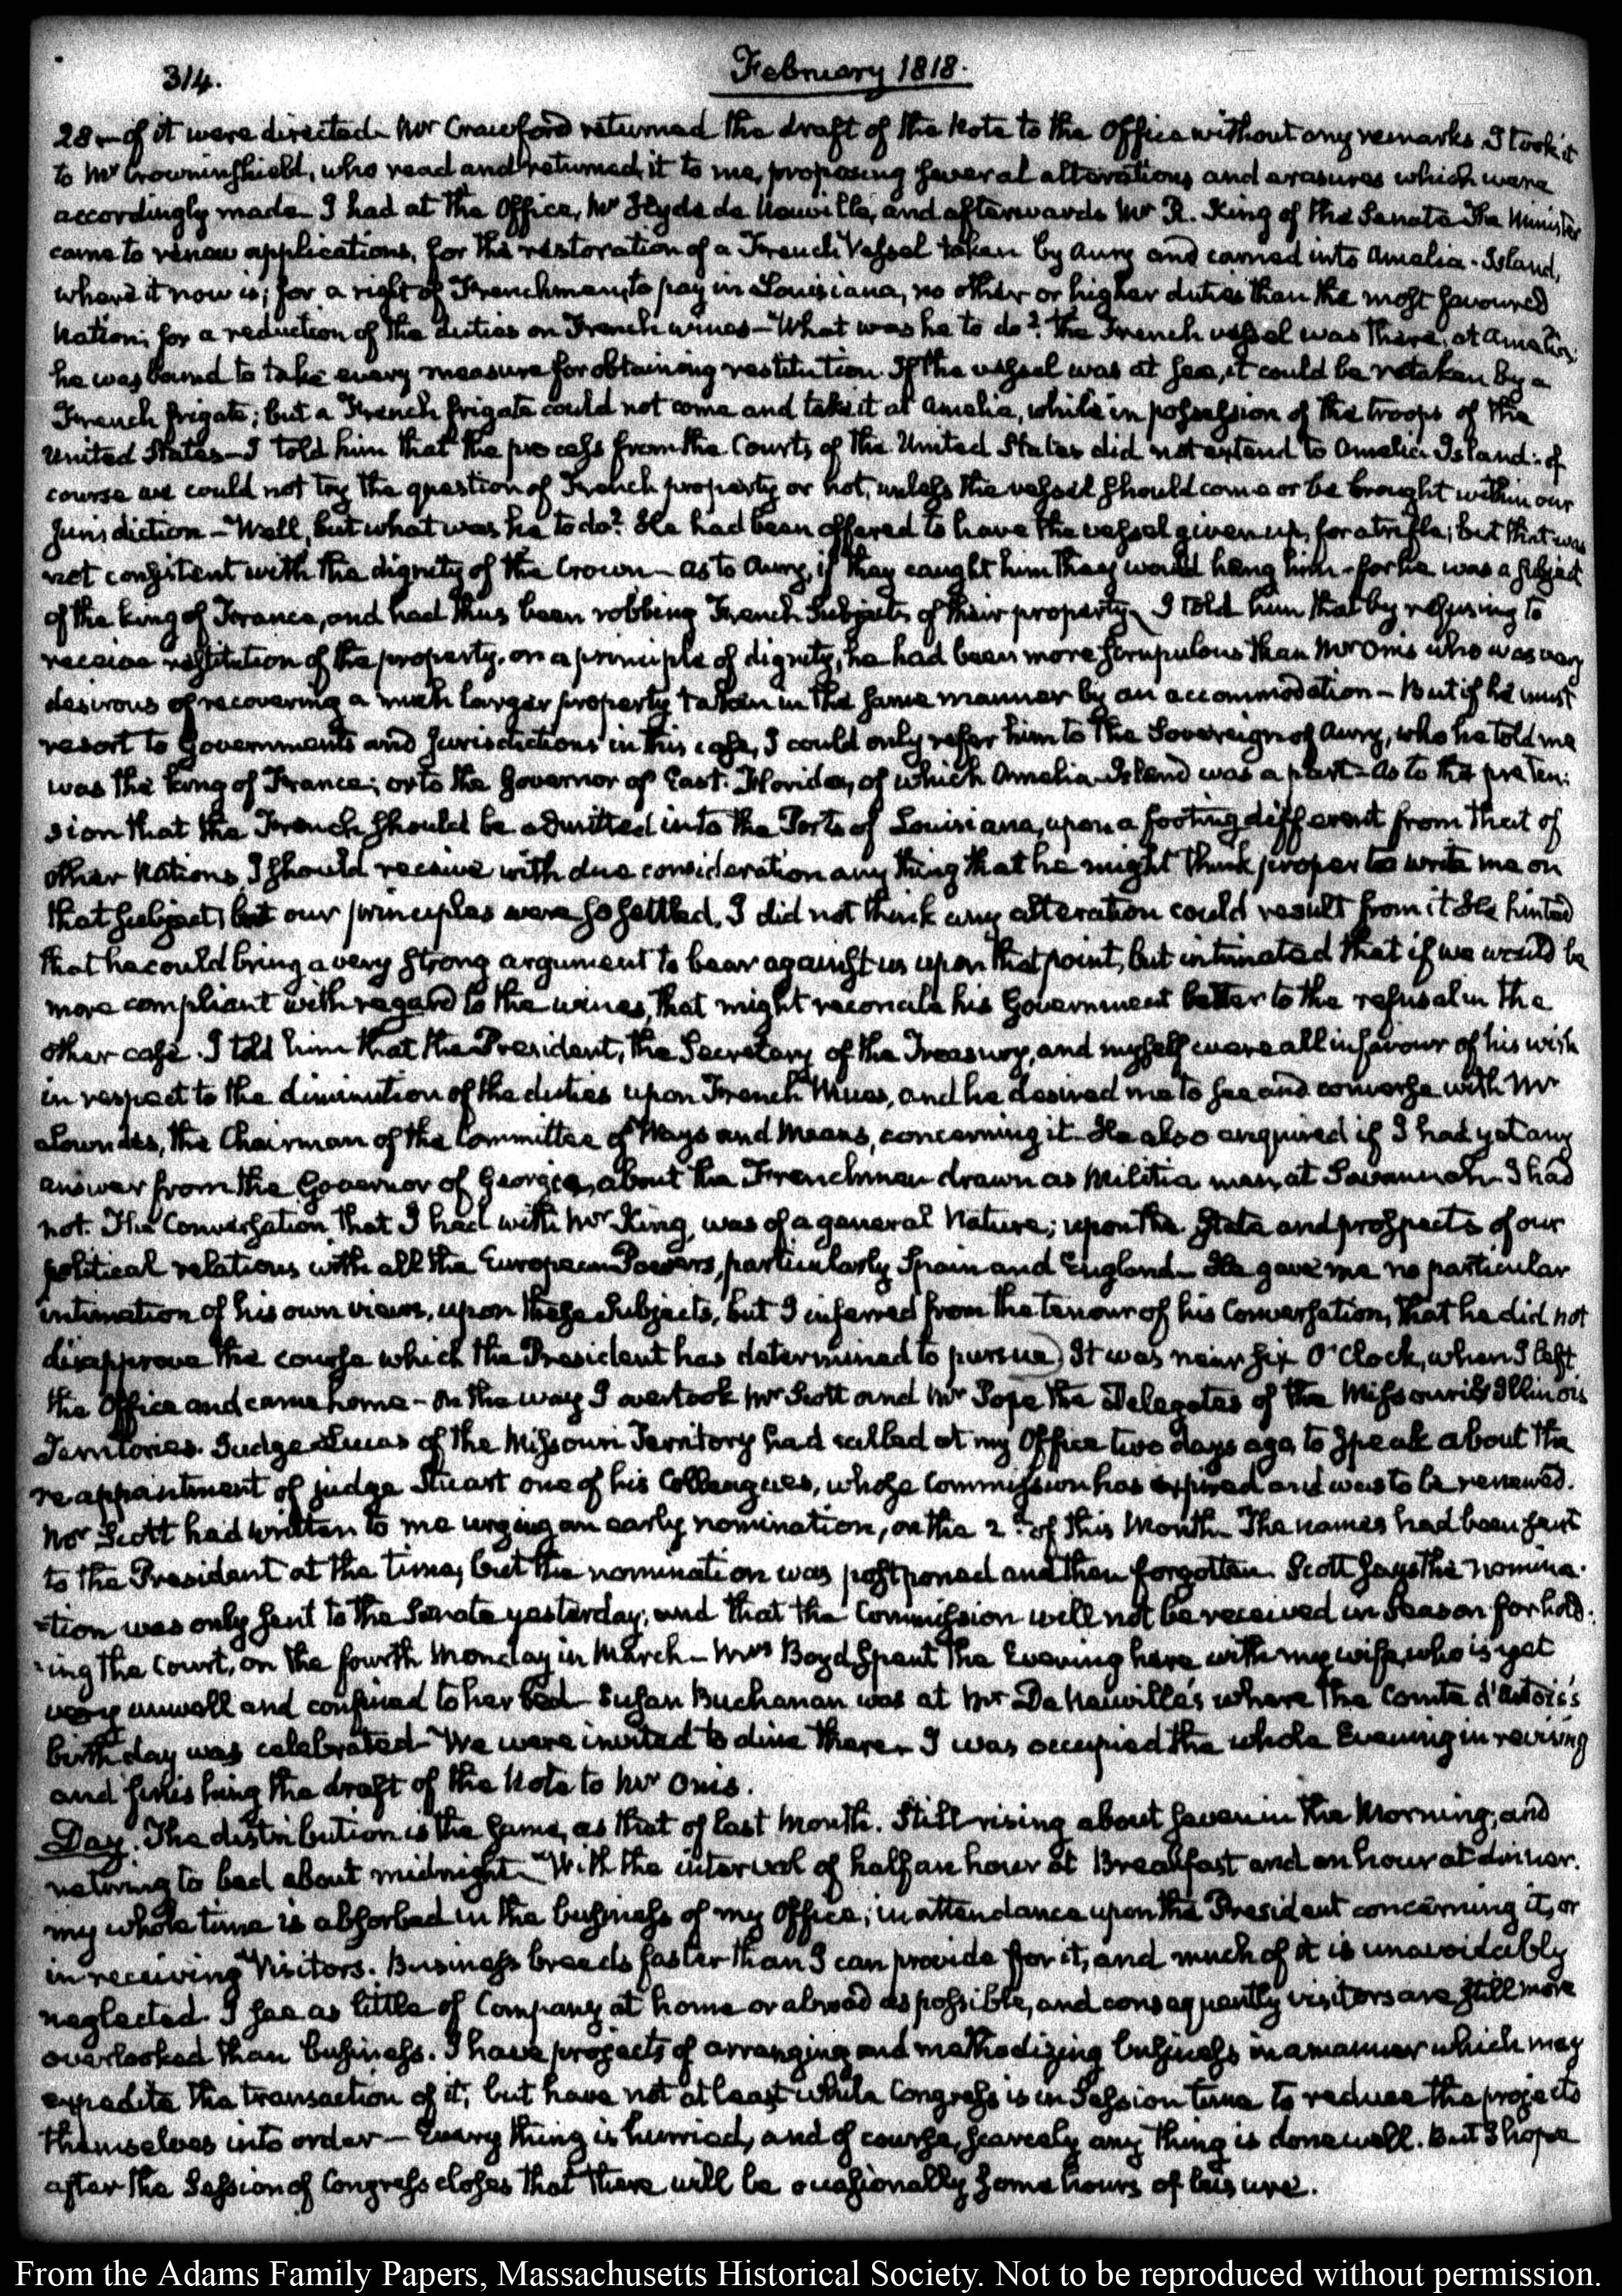 314.
February 1818.
28 — of it were directed. Mr Crawford returned the draft of the Note to the Office without any remarks. I took it
to Mr Crowninshield, who read and returned it to me, proposing several alterations and erasures which were
accordingly made. I had at the Office, Mr Hyde de Neuville, and afterwards Mr R. King of the Senate. The Minister
came to renew applications, for the restoration of a French Vessel taken by Aury and carried into Amelia-Island,
where it now is; for a right of Frenchmen, to pay in Louisiana, no other or higher duties than the most favoured
Nation; for a reduction of the duties on French wines — What was he to do? The French vessel was there, at Amelia;
he was bound to take every measure for obtaining restitution. If the vessel was at sea, it could be retaken by a
French frigate; but a French frigate could not come and take it at Amelia, while in possession of the troops of the
United States — I told him that the process from the Courts of the United States did not extend to Amelia Island: of
course we could not try the question of French property or not, unless the vessel should come or be brought within our
jurisdiction — Well, but what was he to do? He had been offered to have the vessel given up, for a trifle; but that was
not consistent with the dignity of the Crown — as to Aury, if they caught him they would hang him — for he was a subject
of the king of France, and had thus been robbing French Subjects of their property. I told him that by refusing to
receive restitution of the property, on a principle of dignity, he had been more scrupulous than Mr Onis who was very
desirous of recovering a much larger property taken in the same manner by an accommodation — But if he must
resort to Governments and Jurisdictions in this case, I could only refer him to the Sovereign of Aury, who he told me
was the king of France; or to the Governor of East-Florida, of which Amelia-Island was a part — As to the preten-
sion that the French should be admitted into the Ports of Louisiana, upon a footing different from that of
other Nations, I should receive with due consideration any thing that he might think proper to write me on
that subject; but our principles were so settled, I did not think any alteration could result from it. He hinted
that he could bring a very strong argument to bear against us upon that point, but intimated that if we would be
more compliant with regard to the wines, that might reconcile his Government better to the refusal in the
other case. I told him that the President, the Secretary of the Treasury, and myself were all in favour of his wish
in respect to the diminution of the duties upon French Wines, and he desired me to see and converse with Mr
Lowndes, the Chairman of the Committee of Ways and Means, concerning it. He also enquired if I had yet any
answer from the Governor of Georgia, about the Frenchman drawn as Militia man, at Savannah. I had
not. The Conversation that I had with Mr King, was of a general Nature; upon the State and prospects of our
political relations with all the European Powers, particularly Spain and England. He gave me no particular
intimation of his own views, upon these Subjects, but I inferred from the tenour of his Conversation, that he did not
disapprove the course which the President has determined to pursue) It was near six O'Clock, when I left
the Office and came home — On the way I overtook Mr Scott and Mr Pope the Delegates of the Missouri & Illinois
Territories. Judge Lucas of the Missouri Territory had called at my Office two days ago, to speak about the
reappointment of judge Stuart one of his Colleagues, whose Commission has expired and was to be renewed.
Mr Scott had written to me urging an early nomination, on the 2d of this Month. The names had been sent
to the President at the time, but the nomination was postponed and then forgotten. Scott says the nomina-
-tion was only sent to the Senate yesterday, and that the Commission will not be received in Season for hold-
-ing the Court, on the fourth Monday in March — Mrs Boyd spent the Evening here with my wife, who is yet
very unwell and confined to her bed — Susan Buchanan was at Mr De Neuville's where the Comte d'Artois's
birth day was celebrated — We were invited to dine there. I was occupied the whole Evening in revising
and finishing the draft of the Note to Mr Onis.
Day. The distribution is the same, as that of last Month. Still rising about seven in the Morning, and
retiring to bed about midnight — With the interval of half an hour at Breakfast and an hour at dinner.
my whole time is absorbed in the business of my Office; in attendance upon the President concerning it, or
in receiving Visitors. Business breeds faster than I can provide for it, and much of it is unavoidably
neglected. I see as little of Company at home or abroad as possible, and consequently visitors are still more
overlooked than business. I have projects of arranging and methodizing business in a manner which may
expedite the transaction of it, but have not at least while Congress is in Session time to reduce the projects
themselves into order — Every thing is hurried, and of course, scarcely any thing is done well. But I hope
after the Session of Congress closes that there will be occasionally some hours of leisure.
From the Adams Family Papers, Massachusetts Historical Society. Not to be reproduced without permission.